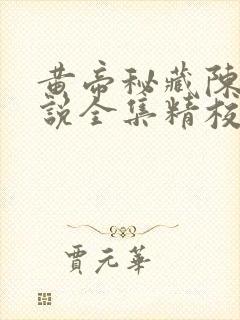 黄帝秘藏陳
説全集精校
賈元華